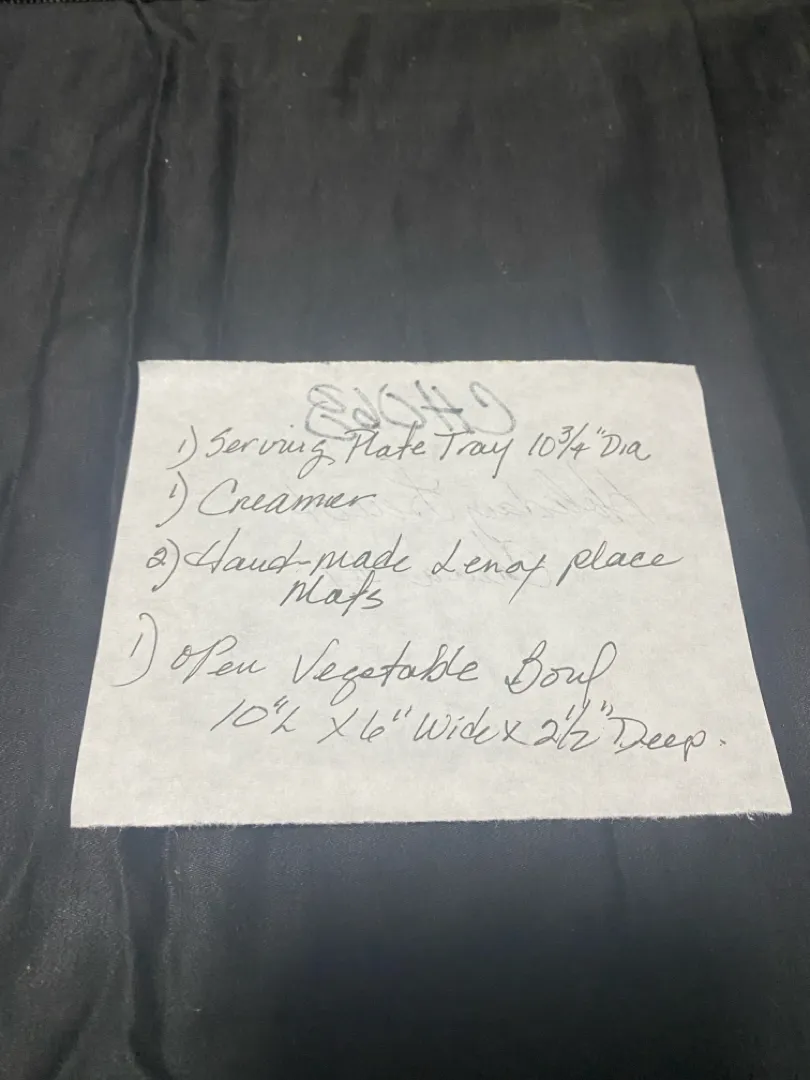 CH063
1) Serving Plate Tray 10 3/4" Dia
1) Creamer
2) Hand-made Lenox place
Mats
1) open Vegetable Bowl
10"L X 6" Wide x 2 1/2" Deep.